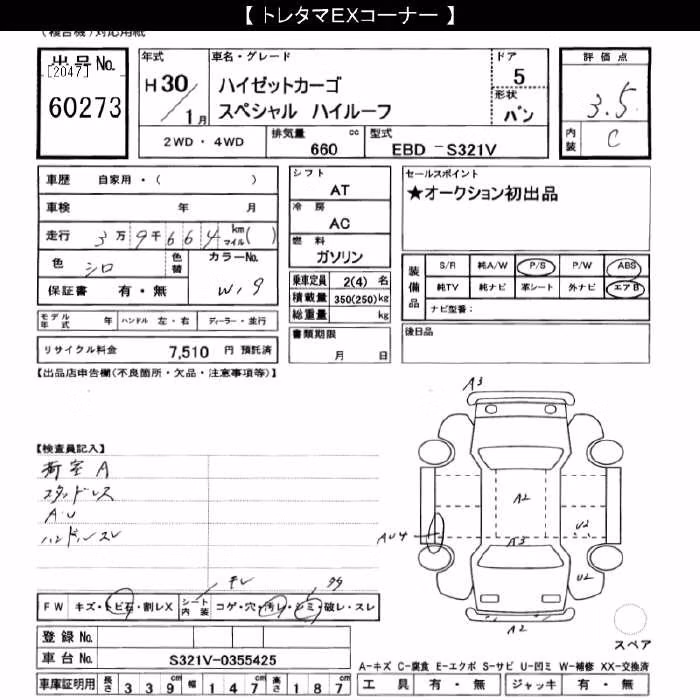 【 トレタマEXコーナー 】
(複合機)対応用紙
出品No.
[2047]
60273
年式
H 30 / 1 月
車名・グレード
ハイゼットカーゴ
スペシャル ハイルーフ
ドア
5
形状
バン
2WD・4WD
排気量 660 cc
型式 EBD -S321V
評価点
3.5
内装 C
車歴 自家用・( )
車検 年 月
走行 3万9千664 km マイル( )
色 シロ 色替
カラーNo. W19
保証書 有・無
モデル年式 年 ハンドル 左・右 ディーラー・並行
リサイクル料金 7,510 円 預託済
シフト
AT
冷房
AC
燃料
ガソリン
乗車定員 2(4) 名
積載量 350(250)kg
総重量 kg
書類期限
月 日
セールスポイント
★オークション初出品
装備品
S/R 純A/W P/S P/W ABS
純TV 純ナビ 革シート 外ナビ エアB
ナビ型番:
後日品
【出品店申告欄(不良箇所・欠品・注意事項等)】
【検査員記入】
荷室 A
スタッドレス
AU
ハンドルスレ
A3
A2
AU4
A3
U2
U2
A2
スペア
FW キズ・トビ石・割レX
シート内装 コゲ・穴・汚レ・シミ・破レ・スレ
登録 No.
車台 No. S321V-0355425
車庫証明用 長さ 339cm 幅 147cm 高さ 187cm
A-キズ C-腐食 E-エクボ S-サビ U-凹ミ W-補修 XX-交換済
工具 有・無 ジャッキ 有・無